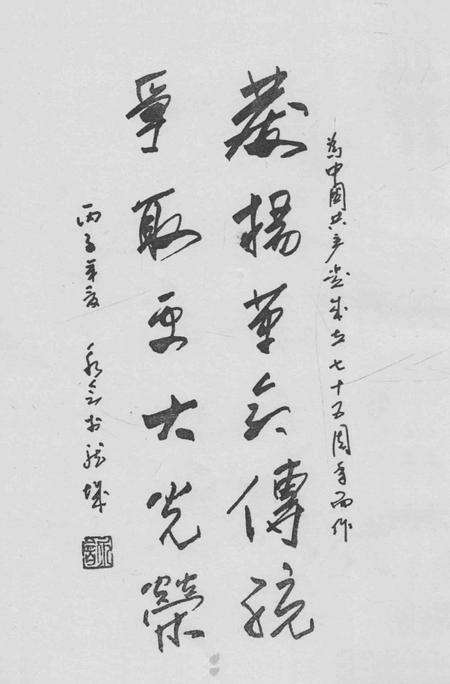 為中国共产党成立七十五周年而作
發揚革命傳統
爭取更大光榮
丙子年夏 永